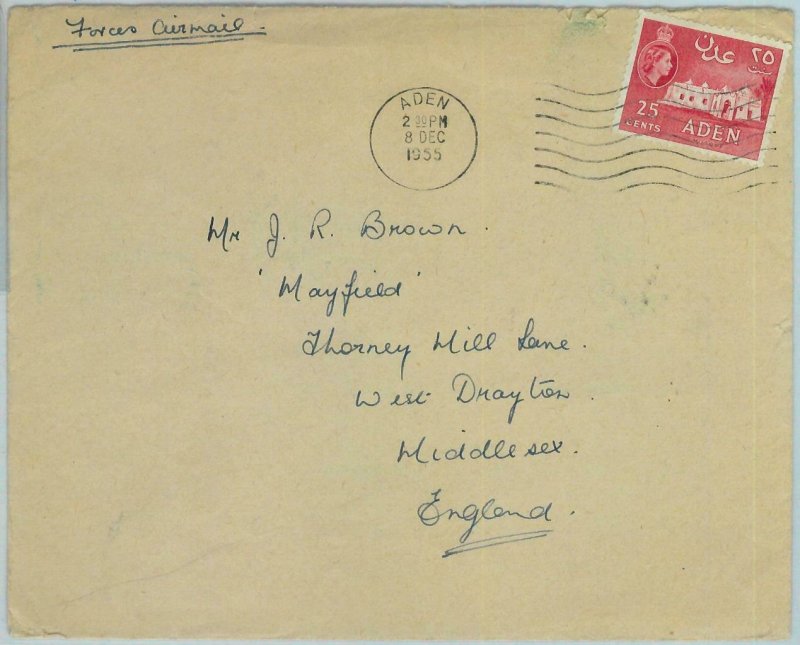 Forces Airmail.
ADEN
2 30 PM
8 DEC
1955
عدن ٢٥
سنت
25
CENTS
ADEN
Mr J. R. Brown.
'Mayfield'
Thorney Mill Lane.
West Drayton.
Middlesex.
England.